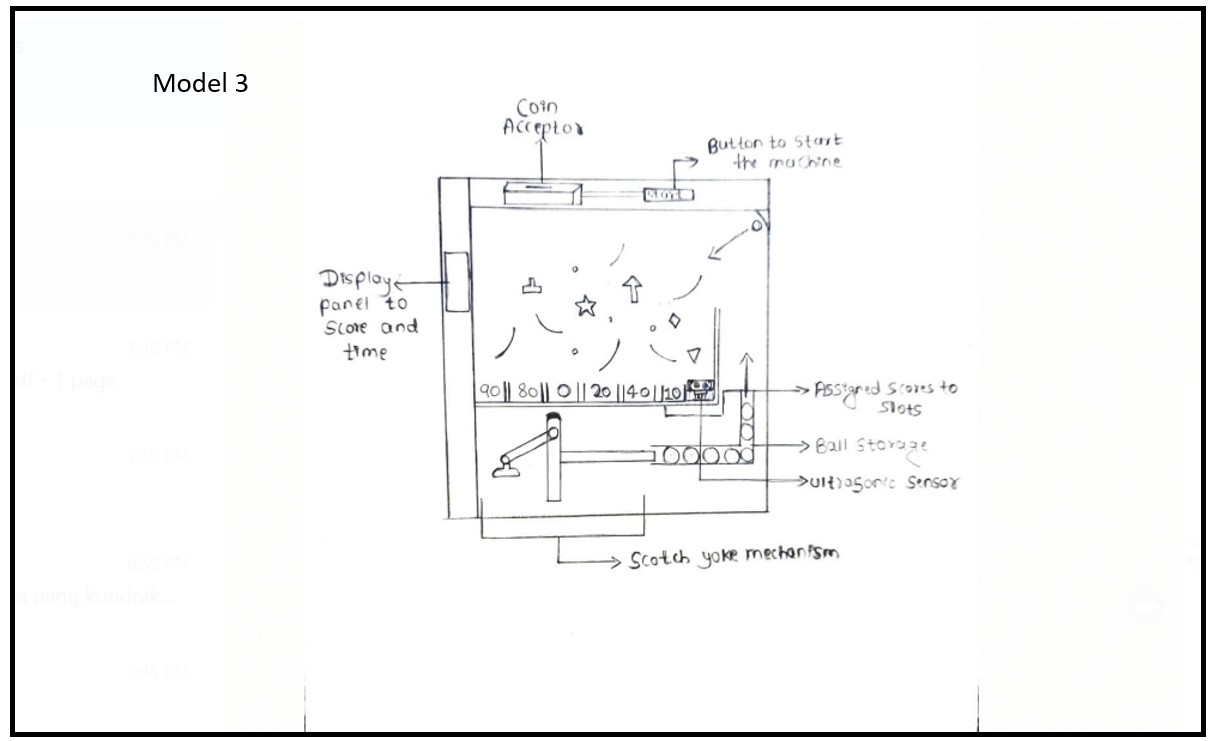 Model 3
Coin
Acceptor
Button to start
the machine
start
Display
panel to
Score and
time
90 80 0 20 40 10
Assigned scores to
slots
Ball storage
ultrasonic sensor
Scotch yoke mechanism
s
7:49 PM
7:48 PM
df • 1 page
7:10 PM
6:59 PM
a nang kundrak...
6:45 PM